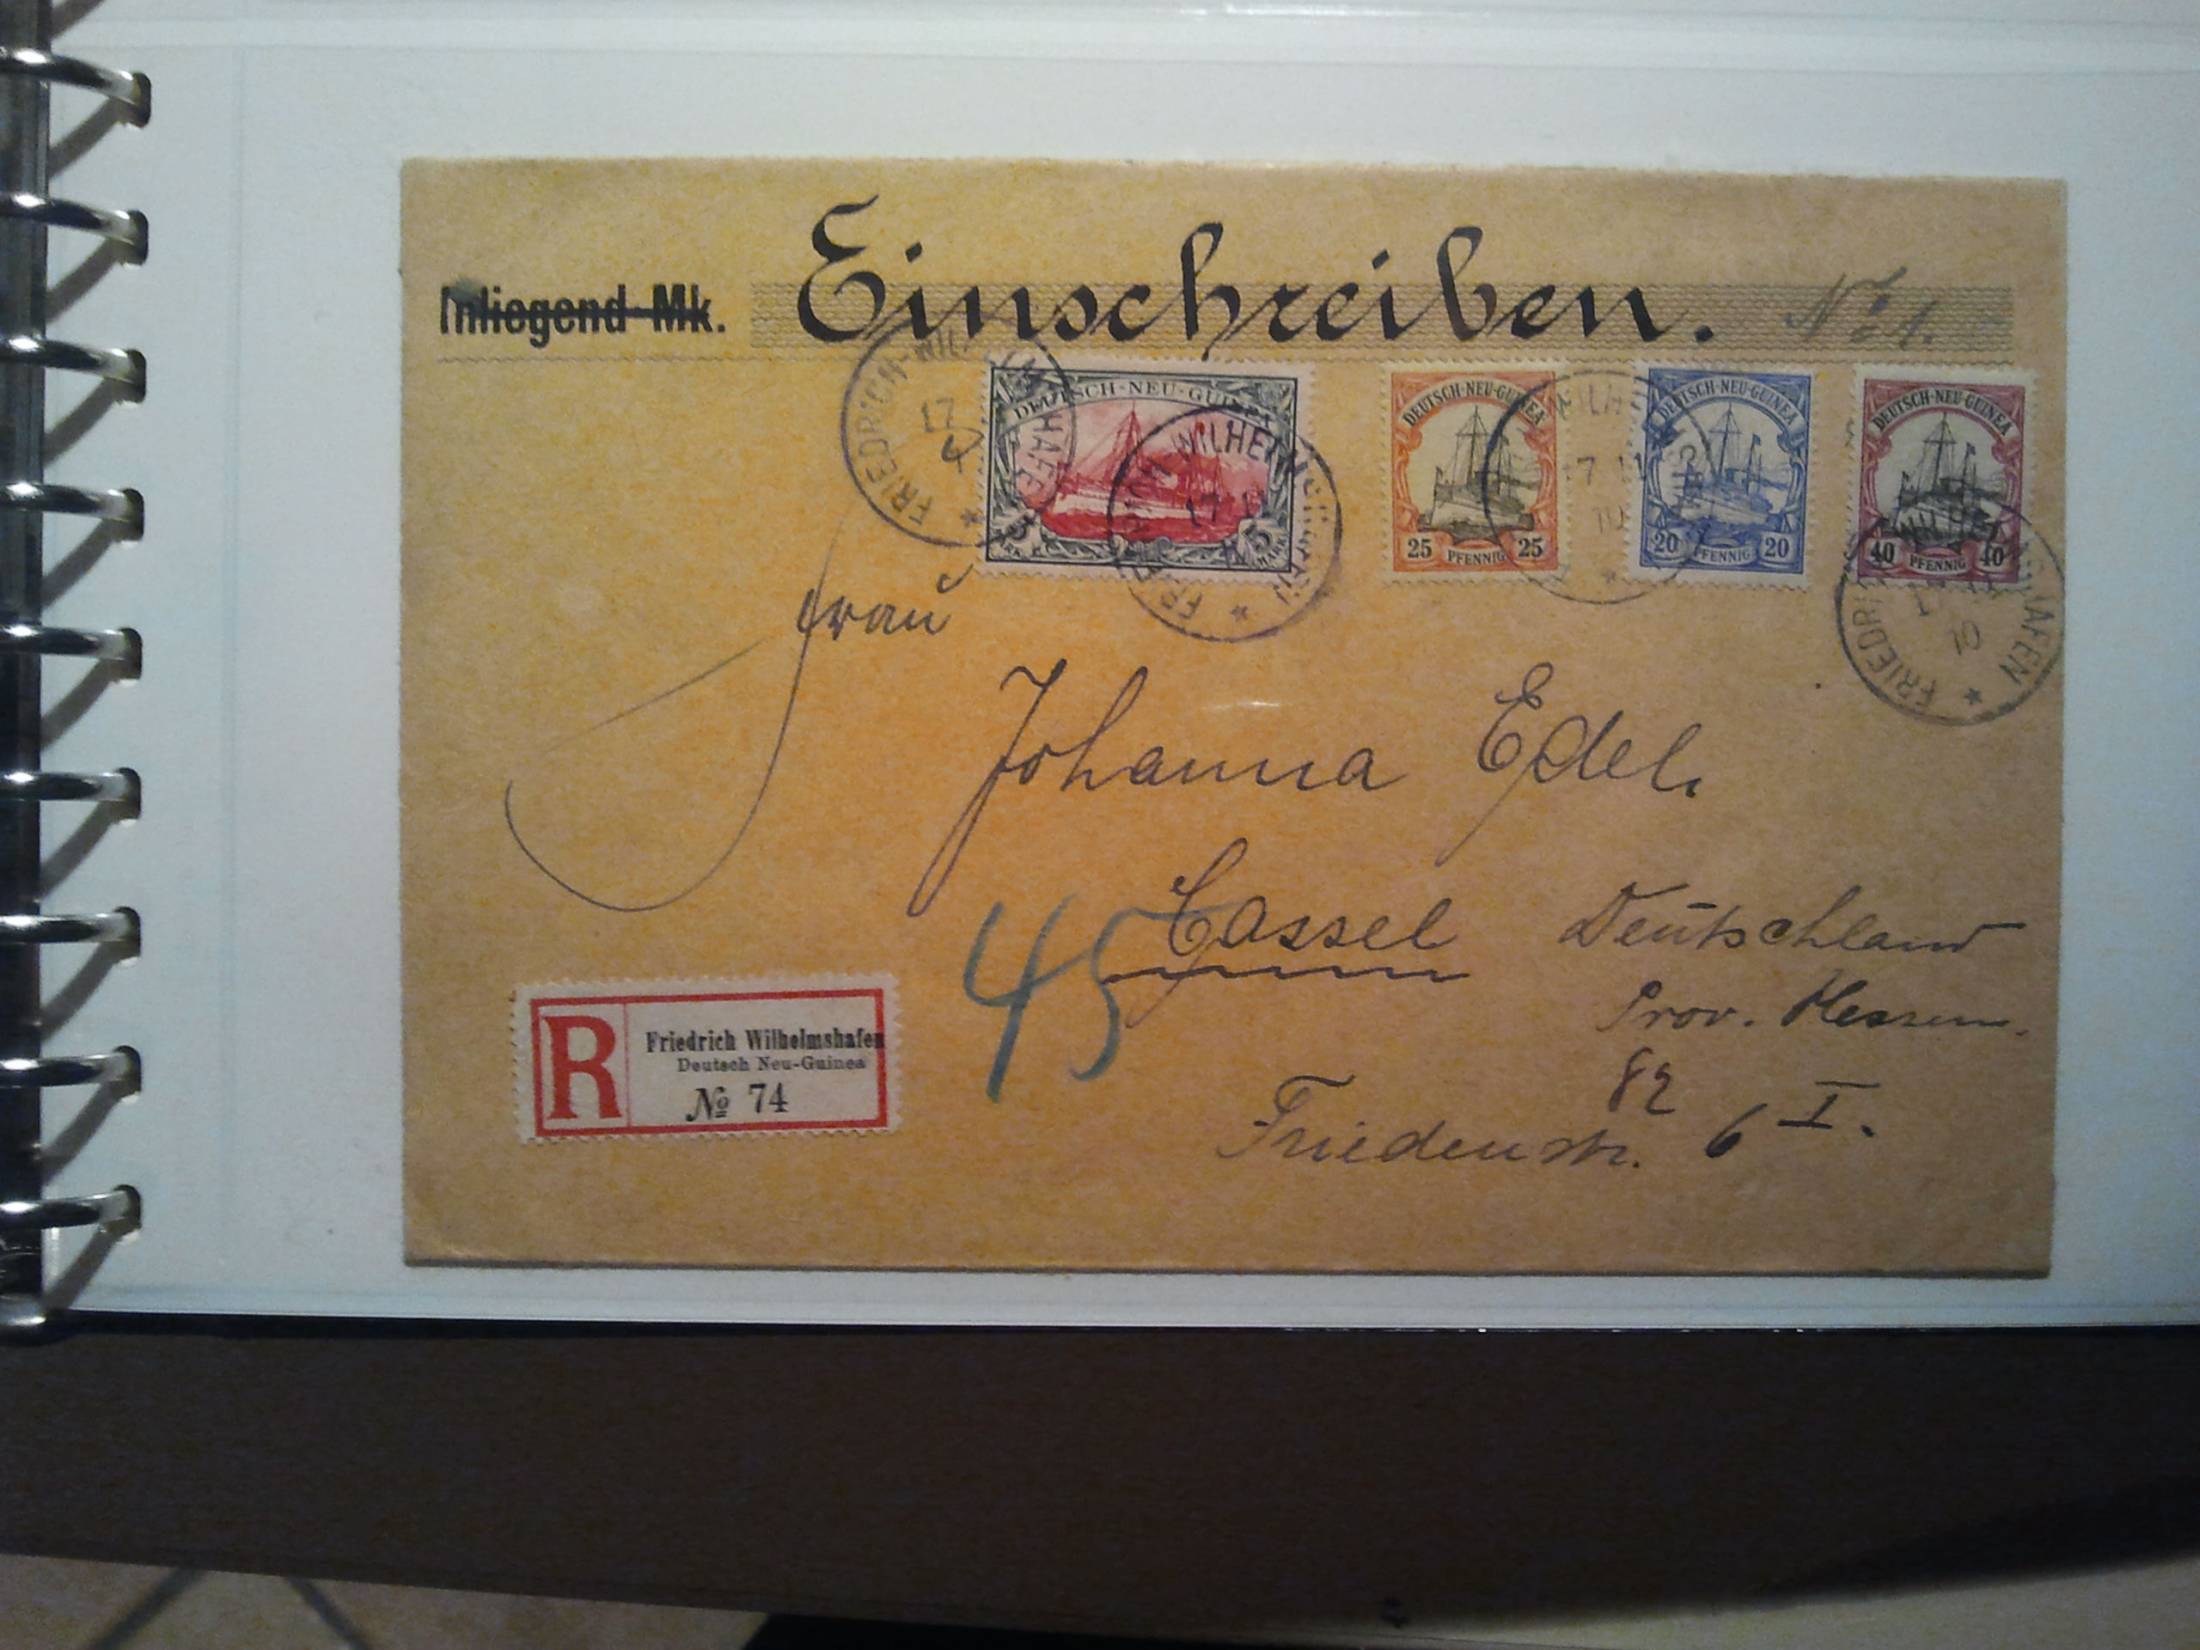 Einschreiben.
Inliegend Mk.
No. 1.
FRIEDRICH-WILHELMSHAFEN
17
DEUTSCH-NEU-GUINEA
5 MARK 5 MARK
FRIEDRICH-WILHELMSHAFEN
17
DEUTSCH-NEU-GUINEA
25 PFENNIG 25
17 11
10
DEUTSCH-NEU-GUINEA
20 PFENNIG 20
DEUTSCH-NEU-GUINEA
40 PFENNIG 40
FRIEDRICH-WILHELMSHAFEN
10
Frau
Johanna Edel.
45
Cassel Deutschland
Prov. Hessen.
R
Friedrich Wilhelmshafen
Deutsch Neu-Guinea
No 74
82
Friedenstr. 6 I.